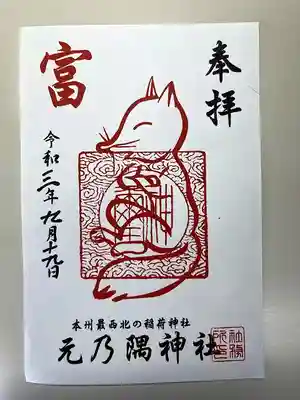 奉拝
富
令和三年九月十九日
本州最西北の稲荷神社
元乃隅神社